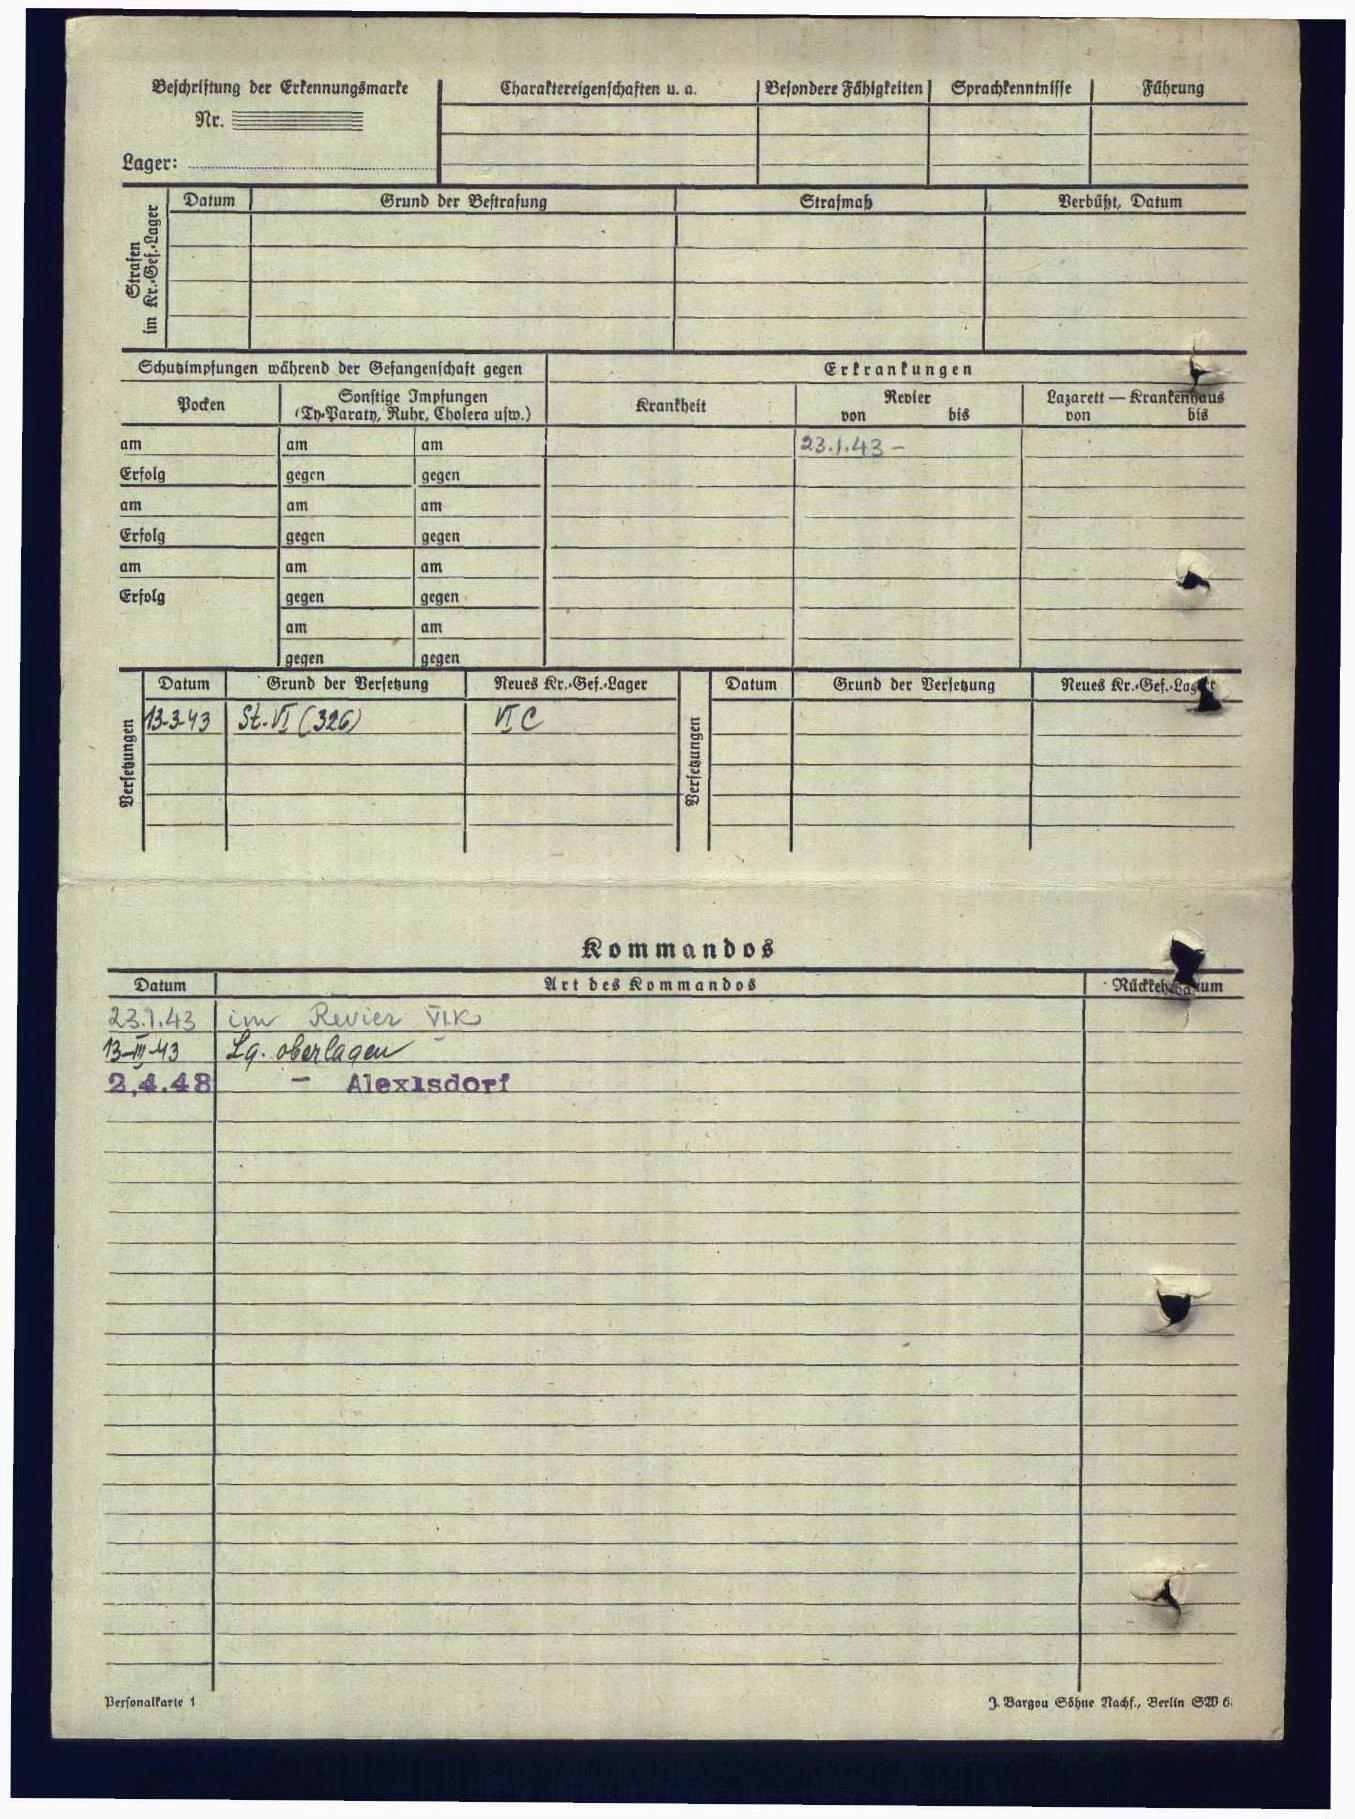 Beschriftung der Erkennungsmarke
Nr.
Lager:
Charaktereigenschaften u. a.
Besondere Fähigkeiten
Sprachkenntnisse
Führung
Strafen
im Kr.-Gef.-Lager
Datum
Grund der Bestrafung
Strafmaß
Verbüßt, Datum
Schutzimpfungen während der Gefangenschaft gegen
Erkrankungen
Pocken
Sonstige Impfungen
(Ty-Paraty, Ruhr, Cholera usw.)
Krankheit
Revier
von bis
Lazarett — Krankenhaus
von bis
am am am
23.1.43 –
Erfolg gegen gegen
am am am
Erfolg gegen gegen
am am am
Erfolg gegen gegen
am am
gegen gegen
Versetzungen
Datum Grund der Versetzung Neues Kr.-Gef.-Lager
13-3-43 St. VI (326) VI C
Versetzungen
Datum Grund der Versetzung Neues Kr.-Gef.-Lager
Kommandos
Datum Art des Kommandos
23.1.43 im Revier VI K
13-III-43 Lg. oberlagen
2.4.43 – Alexisdorf
Personalkarte 1
J. Bargou Söhne Nachf., Berlin SW 6